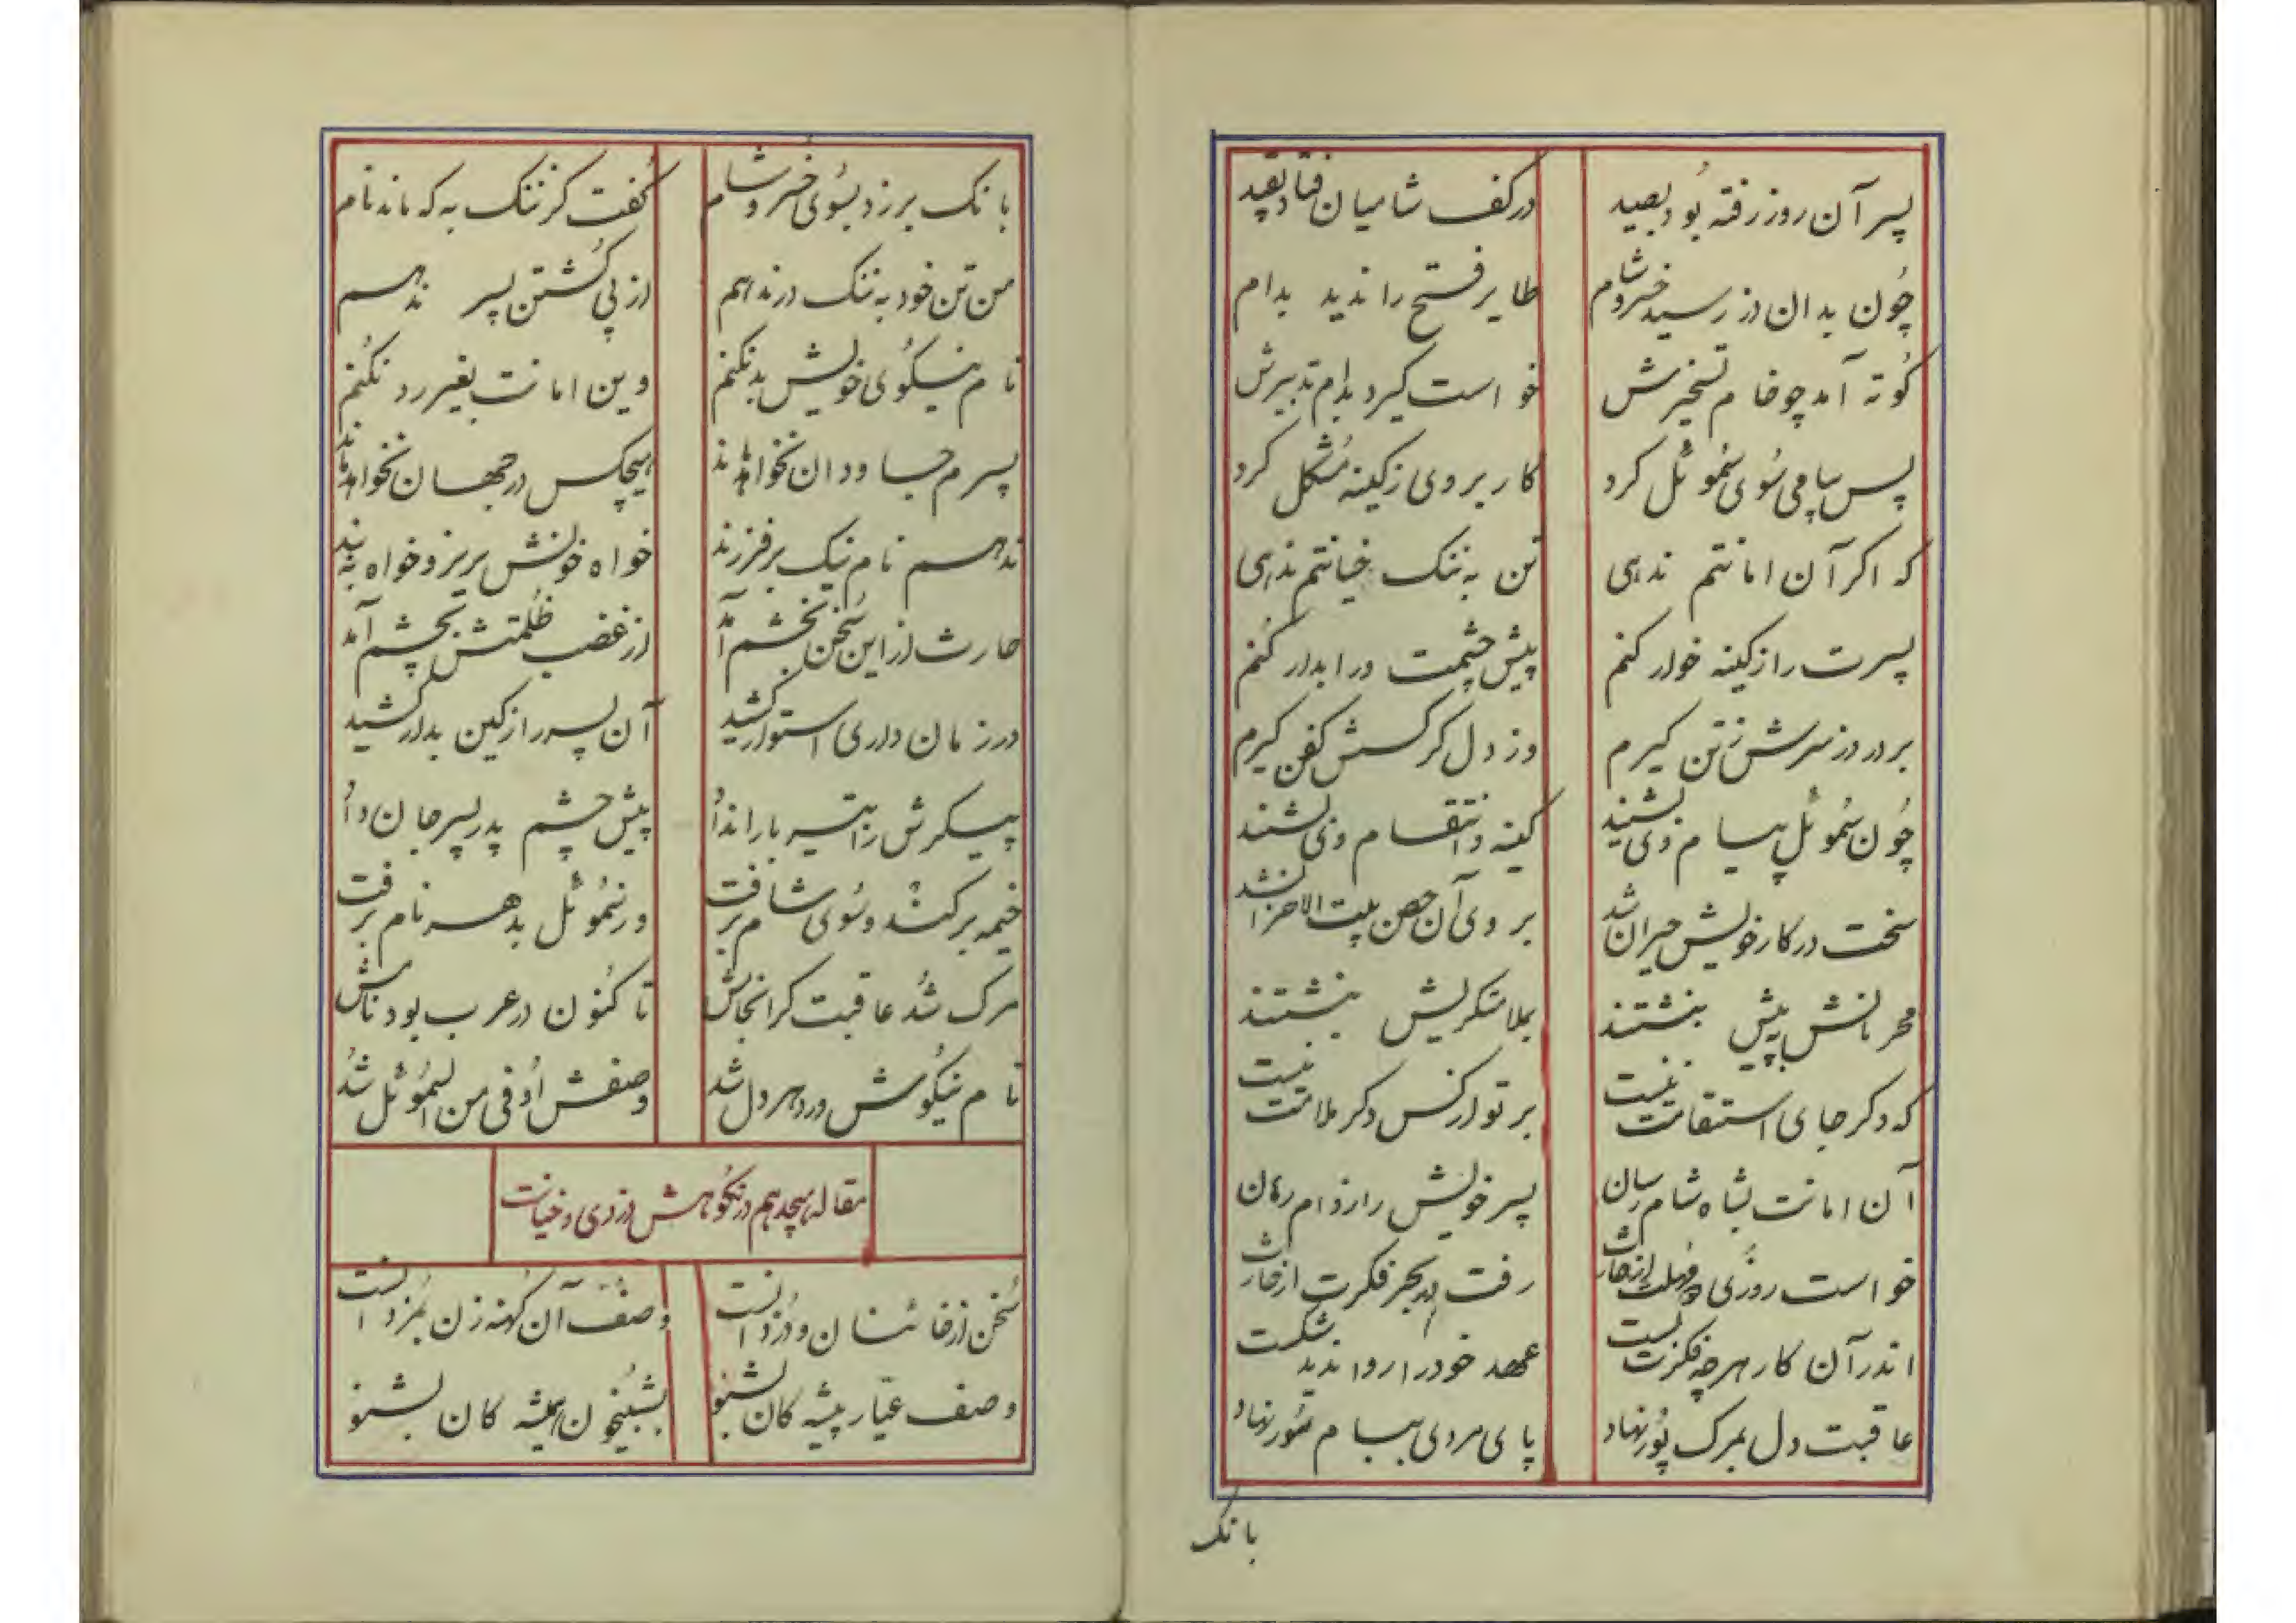 پسر آن روز رفته بُود بصید در کف شامیان فتاد بقید
چُون بدان دز رسید خسرو شام طایر فتح را ندید بدام
کُوته آمد چو خام تسخیرش خواست گیرد بدام تدبیرش
پس پیامی سُوی سُموئل کرد کار بر وی ز کینه مُشکل کرد
که اکر آن امانتم ندهی تن به ننک خیانتم ندهی
پسرت را ز کینه خوار کنم پیش چشمت ورا بدار کُنم
بر در دز سرش ز تن گیرم وز دل کرکسش کفن گیرم
چُون سُموئل پیام وی بشنید کینه و انتقام وی بشنید
سخت در کار خویش حیران شد بر وی آن حصن بیت الاحزان شد
محرمانش به پیش بنشتند بملامتکریش بنشتند
که دکر جای استقامت نیست بر تو از کس دکر ملامت نیست
آن امانت بشاه شام رسان پسر خویش را ز دام رهان
خواست روزی مهلت از حارث رفت در بحر فکرت از حارث
اندر آن کار هر چه فکرت بست عهد خود را روا ندید شکست
عاقبت دل بمرک پُور نهاد پای مردی ببام سُور نهاد
بانک
بانک بر زد بسُوی خسرو شام کُفت کز ننک به که ماند نام
من تن خود به ننک در ندهم از پی کُشتن پسر ندهم
نام نیکُوی خویش بد نکنم وین امانت بغیر رد نکُنم
پسرم جاودان نخواهد ماند هیچکس در جهان نخواهد ماند
ندهم نام نیک بر فرزند خواه خونش بریز و خواه به بند
حارث از این سُخن بخشم آمد از غضب ظُلمتش بچشم آمد
در زمان داری استوار کشید آن پسر را ز کین بدار کشید
پیکرش را به تیر باران داد پیش چشم پدر پسر جان داد
خیمه بر کند و سُوی شام برفت وز سُموئل بدهر نام برفت
مرک شُد عاقبت کر انجامش تا کنُون در عرب بود نامش
نام نیکُوش ورد هر دل شد وصفش اُوفی من السُموئل شُد
مقاله هیجدهم در نکُوهش دزدی و خیانت
سُخن از خائنان و دُزدانست وصف آن کُهنه زن بمُزدانست
وصف عیّار پیشه کان بشنو بشبیخُون همیشه کان بشنو